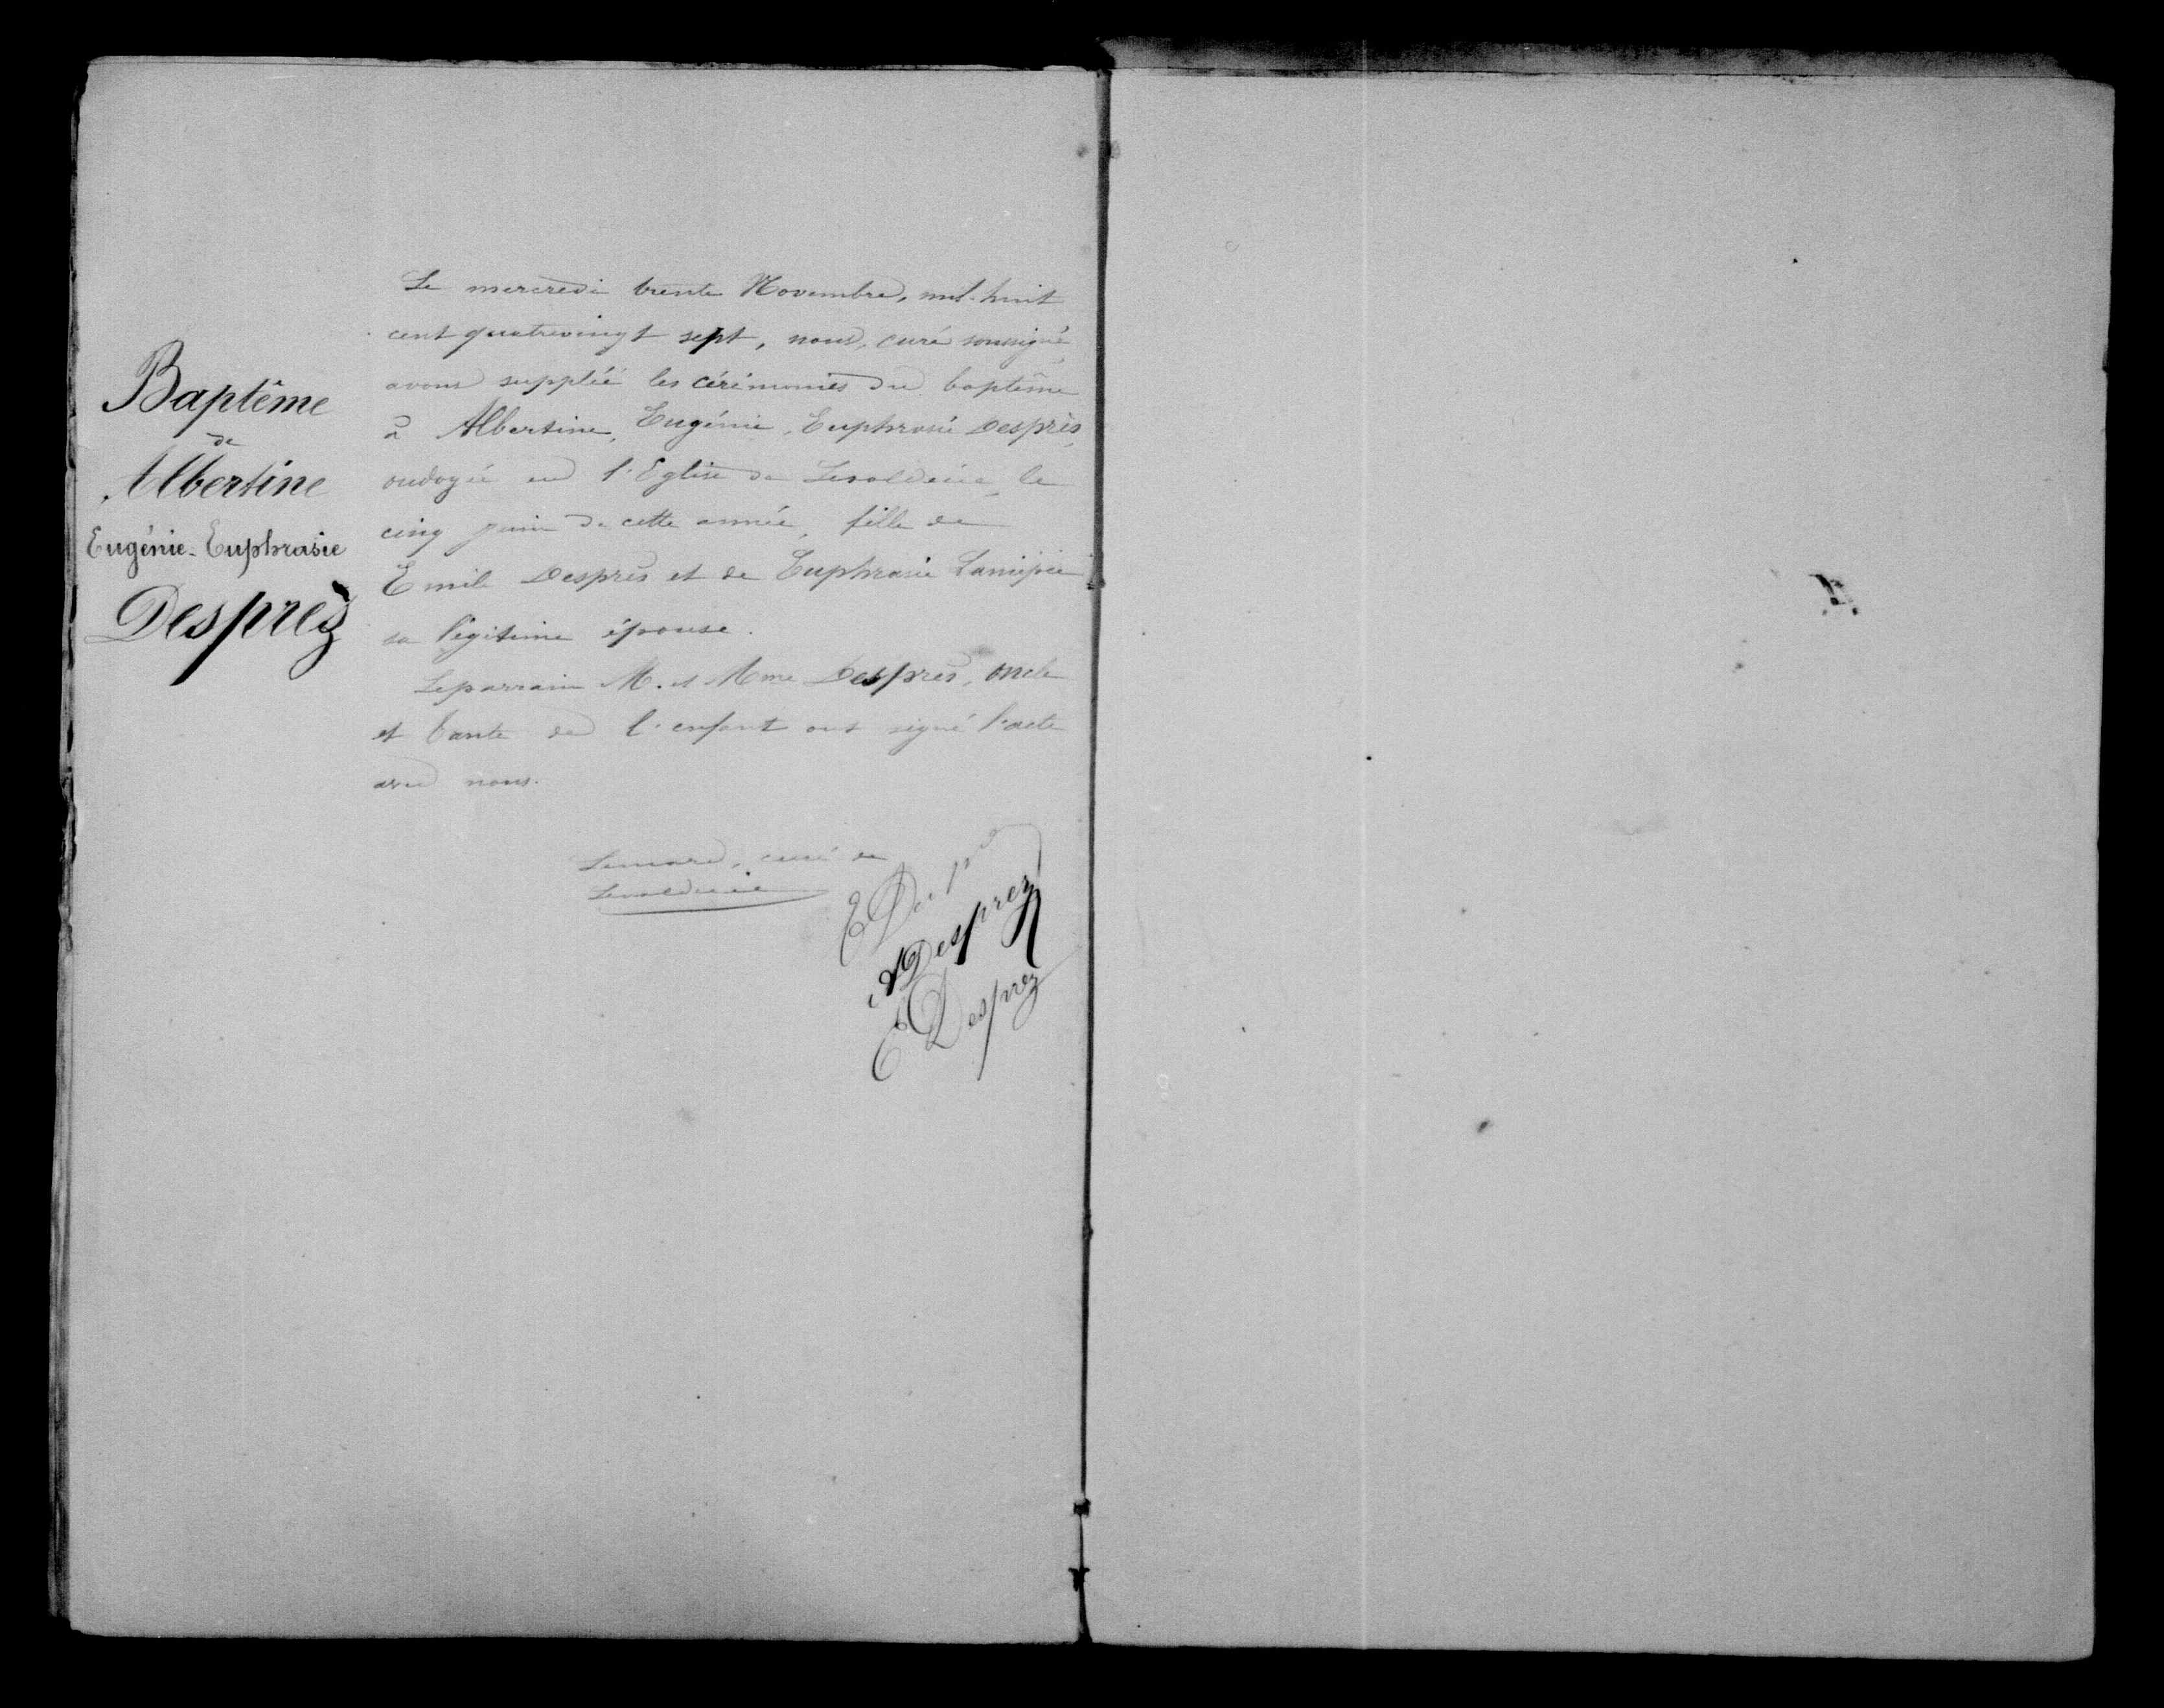 Baptême
de
Albertine
Eugénie-Euphrasie
Desprèz
Le mercredi trente Novembre, mil-huit
cent quatrevingt sept, nous, curé soussigné,
avons suppléé les cérémonies du baptême
à Albertine, Eugénie, Euphrasie Desprès,
ondoyée en l'Eglise de le
cinq juin de cette année, fille de
Emile Desprès et de Euphrasie
sa légitime épouse.
Le parrain M. et Mme Desprès, oncle
et tante de l'enfant ont signé l'acte
avec nous.
curé de
ADesprez
EDesprez